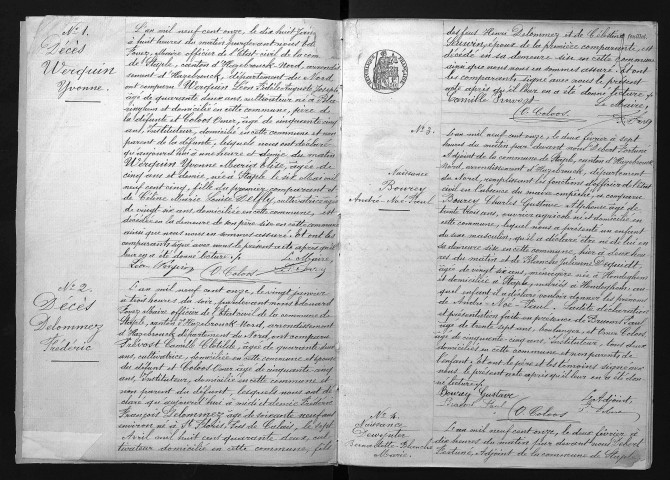 N° 1.
Décès
Werquin
Yvonne.
L'an mil neuf cent onze, le dix huit Janvier
à huit heures du matin par devant nous
Maire officier de l'Etat-civil de la commune
de Staple, canton d'Hazebrouck-Nord, arrondissement
d'Hazebrouck, département du Nord,
ont comparu Werquin Léon Fidèle Auguste Joseph
âgé de quarante deux ans, cultivateur né à
et domicilié en cette commune, père de
la défunte et Coloos Omer, âgé de cinquante cinq
ans, Instituteur, domicilié en cette commune et non
parent de la défunte, lesquels nous ont déclaré
qu'aujourd'hui à une heure et demie du matin
Werquin Yvonne Maria Elise, âgée de
cinq ans et demie, née à Staple le six Mai mil
neuf cent cinq, fille du premier comparant et
de Céline Marie Louise cultivatrice âgée
de vingt six ans domiciliée en cette commune, est
décédée en la demeure de son père sise en cette commune
ainsi que nous nous en sommes assuré. Et ont les
comparants signé avec nous le présent acte après qu'il
leur en a été donné lecture.
Le Maire,
O. Coloos
N° 2.
Décès
Delommez
Frédéric
L'an mil neuf cent onze, le vingt Janvier
à trois heures du soir, par devant nous Edouard
Maire officier de l'Etat civil de la commune de
Staple, canton d'Hazebrouck-Nord, arrondissement
d'Hazebrouck département du Nord, ont comparu
Prévost Camille Clotilde, âgée de quarante
ans, cultivatrice, domiciliée en cette commune et épouse
du défunt et Coloos Omer âgé de cinquante cinq
ans, Instituteur, domicilié en cette commune et
non parent du défunt, lesquels nous ont déclaré
qu'aujourd'hui à midi et demie Frédéric
François Delommez âgé de soixante neuf ans
environ né à St Floris, Pas de Calais, le sept
Avril mil huit cent quarante deux, cultivateur
domicilié en cette commune, fils
des feus Henri Delommez et de
époux de la première comparante, est
décédé en sa demeure sise en cette commune
ainsi que nous nous en sommes assuré. Et ont
les comparants signé avec nous le présent
acte après qu'il leur en a été donné lecture
Camille Prévost
Le Maire,
O. Coloos
N° 3.
Naissance
Bowrey
André Noé Henri
L'an mil neuf cent onze, le deux février à sept
heures du matin par devant nous
Adjoint de la commune de Staple, canton d'Hazebrouck
Nord, arrondissement d'Hazebrouck, département
du Nord, remplissant les fonctions d'officier de l'état
civil en l'absence du maire empêché a comparu
Bowrey Charles Gustave Alphonse âgé de
trente trois ans, ouvrier agricole né et domicilié en
cette commune, lequel nous a présenté un enfant
du sexe masculin, qu'il a déclaré être né de lui en
sa demeure sise en cette commune, hier à deux heures
du matin et de Blanche Julienne
âgée de vingt six ans, ménagère née à Hondeghem
et domiciliée à Staple, mariés à Hondeghem, auquel
enfant il a déclaré vouloir donner les prénoms
de André-Noé-Henri. Ladite déclaration
et présentation faite en présence de
âgé de trente sept ans, boulanger, et Omer Coloos
âgé de cinquante-cinq ans, Instituteur, tous deux
domiciliés en cette commune et non parents de
l'enfant, et ont le père et les témoins signé avec
nous le présent acte après qu'il leur en a été donné
lecture.
Bowrey Gustave
L'Adjoint,
O. Coloos
N° 4.
Naissance
Bernadette Blanche
Marie.
L'an mil neuf cent onze, le deux février, à
dix heures du matin par devant nous
Adjoint de la commune de Staple